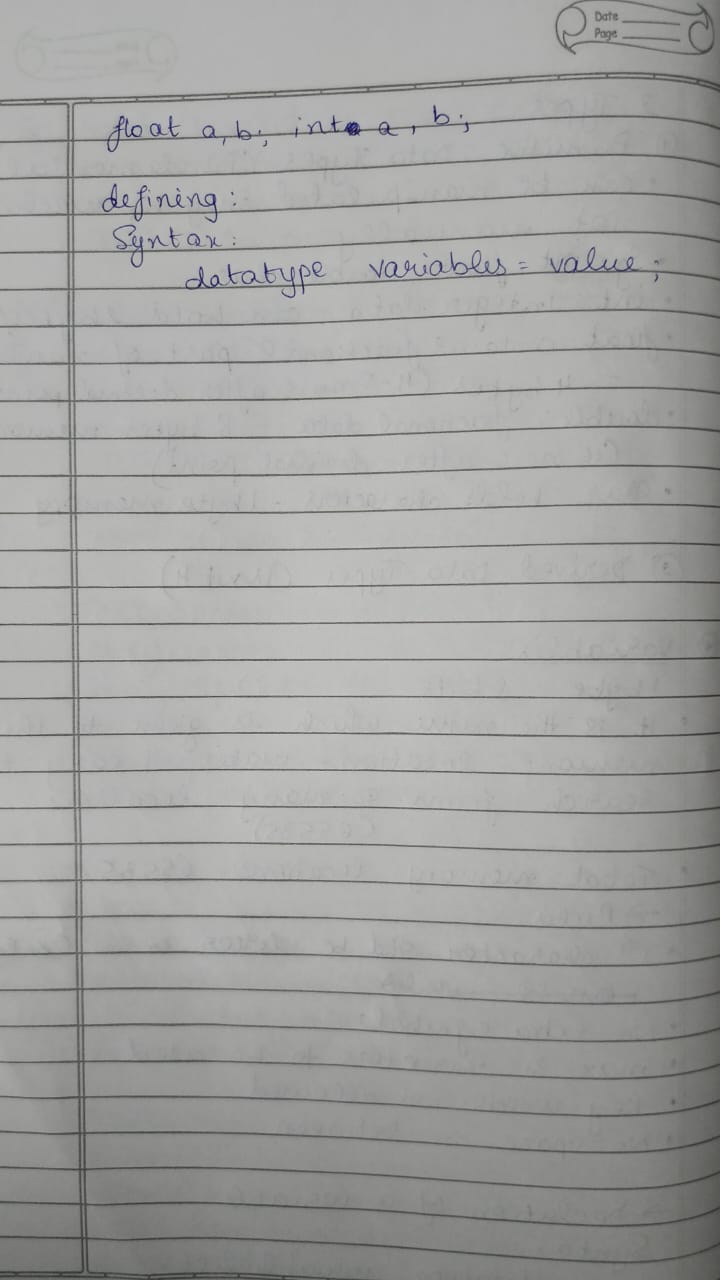 Date
Page
float a, b; int a, b;
defining:
Syntax:
datatype variables = value;